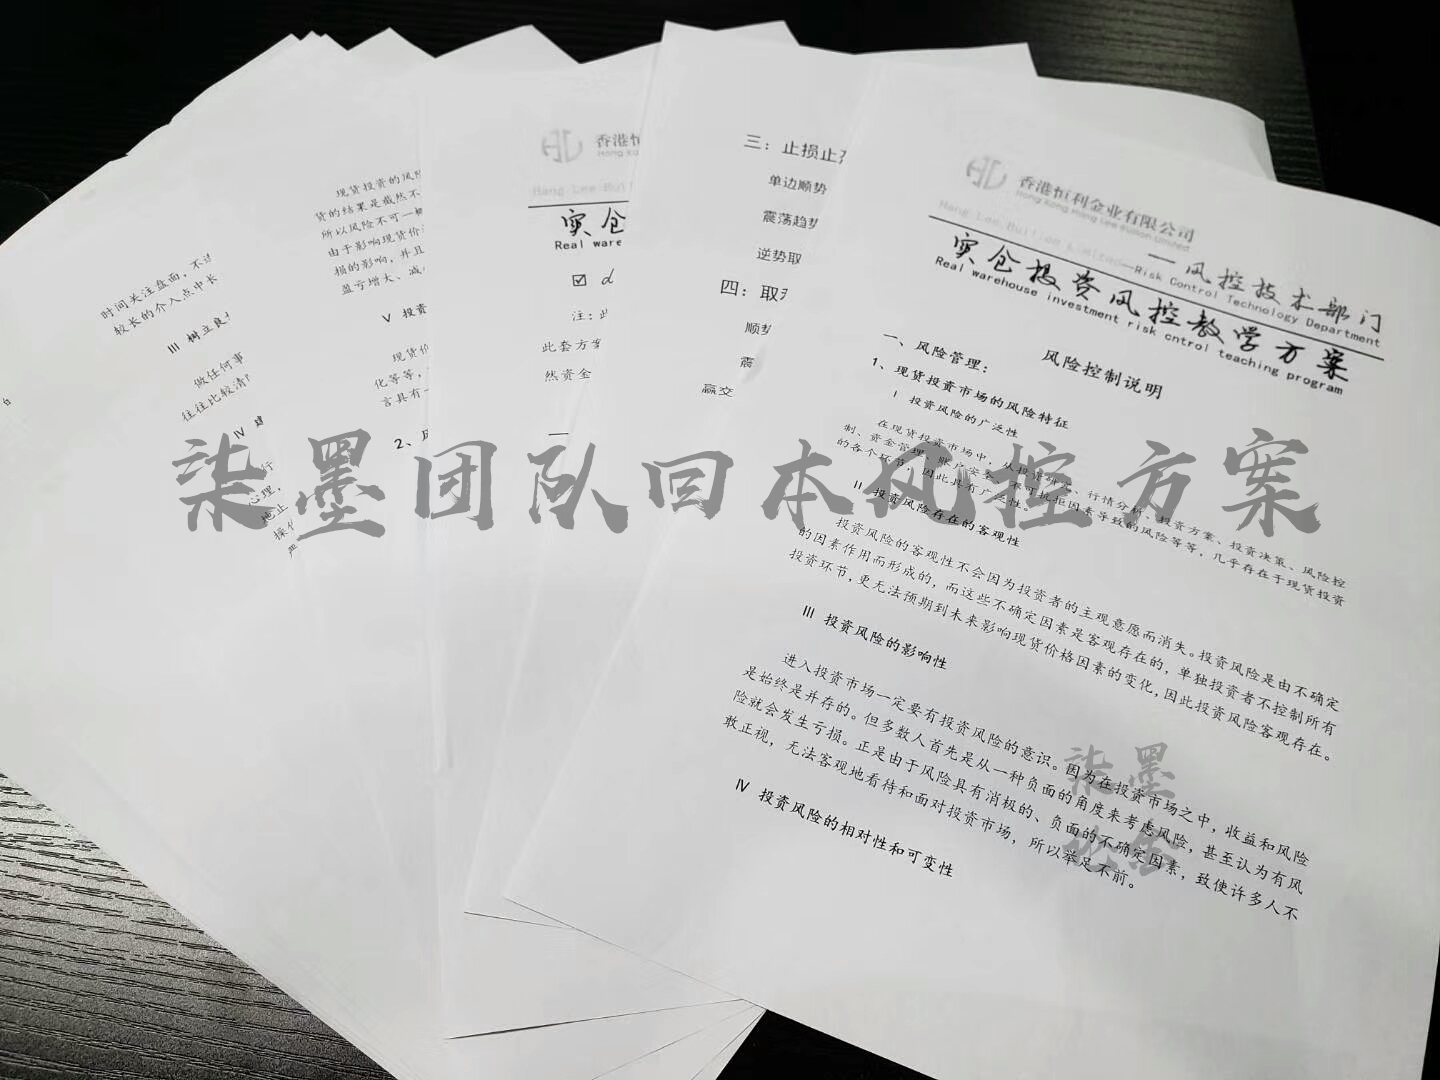 香港恒利金业有限公司
Hang Lee Bullion Limited—Risk Control Technology Department
—风控技术部门
实仓投资风控教学方案
Real warehouse investment risk cntrol teaching program
风险控制说明
一、风险管理：
1、现货投资市场的风险特征
I 投资风险的广泛性
在现货投资市场中，从投资研究、行情分析、投资方案、投资决策、风险控
制、资金管理、账户安全、不可抗拒因素导致的风险等等，几乎存在于现货投资
的各个环节，因此具有广泛性。
II 投资风险存在的客观性
投资风险的客观性不会因为投资者的主观意愿而消失。投资风险是由不确定
的因素作用而形成的，而这些不确定因素是客观存在的，单独投资者不控制所有
投资环节，更无法预期到未来影响现货价格因素的变化，因此投资风险客观存在。
III 投资风险的影响性
进入投资市场一定要有投资风险的意识。因为在投资市场之中，收益和风险
是始终是并存的。但多数人首先是从一种负面的角度来考虑风险，甚至认为有风
险就会发生亏损。正是由于风险具有消极的、负面的不确定因素，致使许多人不
敢正视，无法客观地看待和面对投资市场，所以举足不前。
IV 投资风险的相对性和可变性
三：止损止
单边顺势
震荡趋势
逆势取
四：取
顺势
震
赢交
香港恒
Hong Ko
Hang Lee Bul
实仓
Real ware
☑ d
注：此
此套方案
然资金
现货投资的风险
货的结果是截然不
所以风险不可一概
由于影响现货价
损的影响，并且
盈亏增大、减
V 投资
现货价
化等等，
言具有一
2、风
时间关注盘面，不
较长的介入点中长
III 树立良
做任何事
往往比较清
IV 建
行
心理，
地止
操作
严
柒墨团队回本风控方案
柒墨
论金